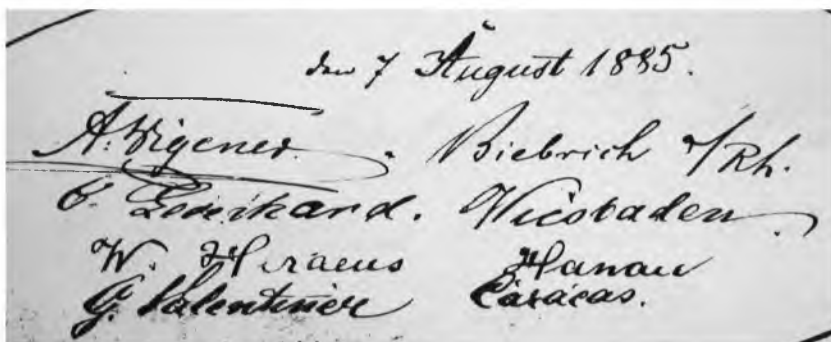 den 7 August 1885.
A. Vigener. Biebrich a/Rh.
Wiesbaden.
W. Heraeus Hanau
G. Valentiner Carácas.